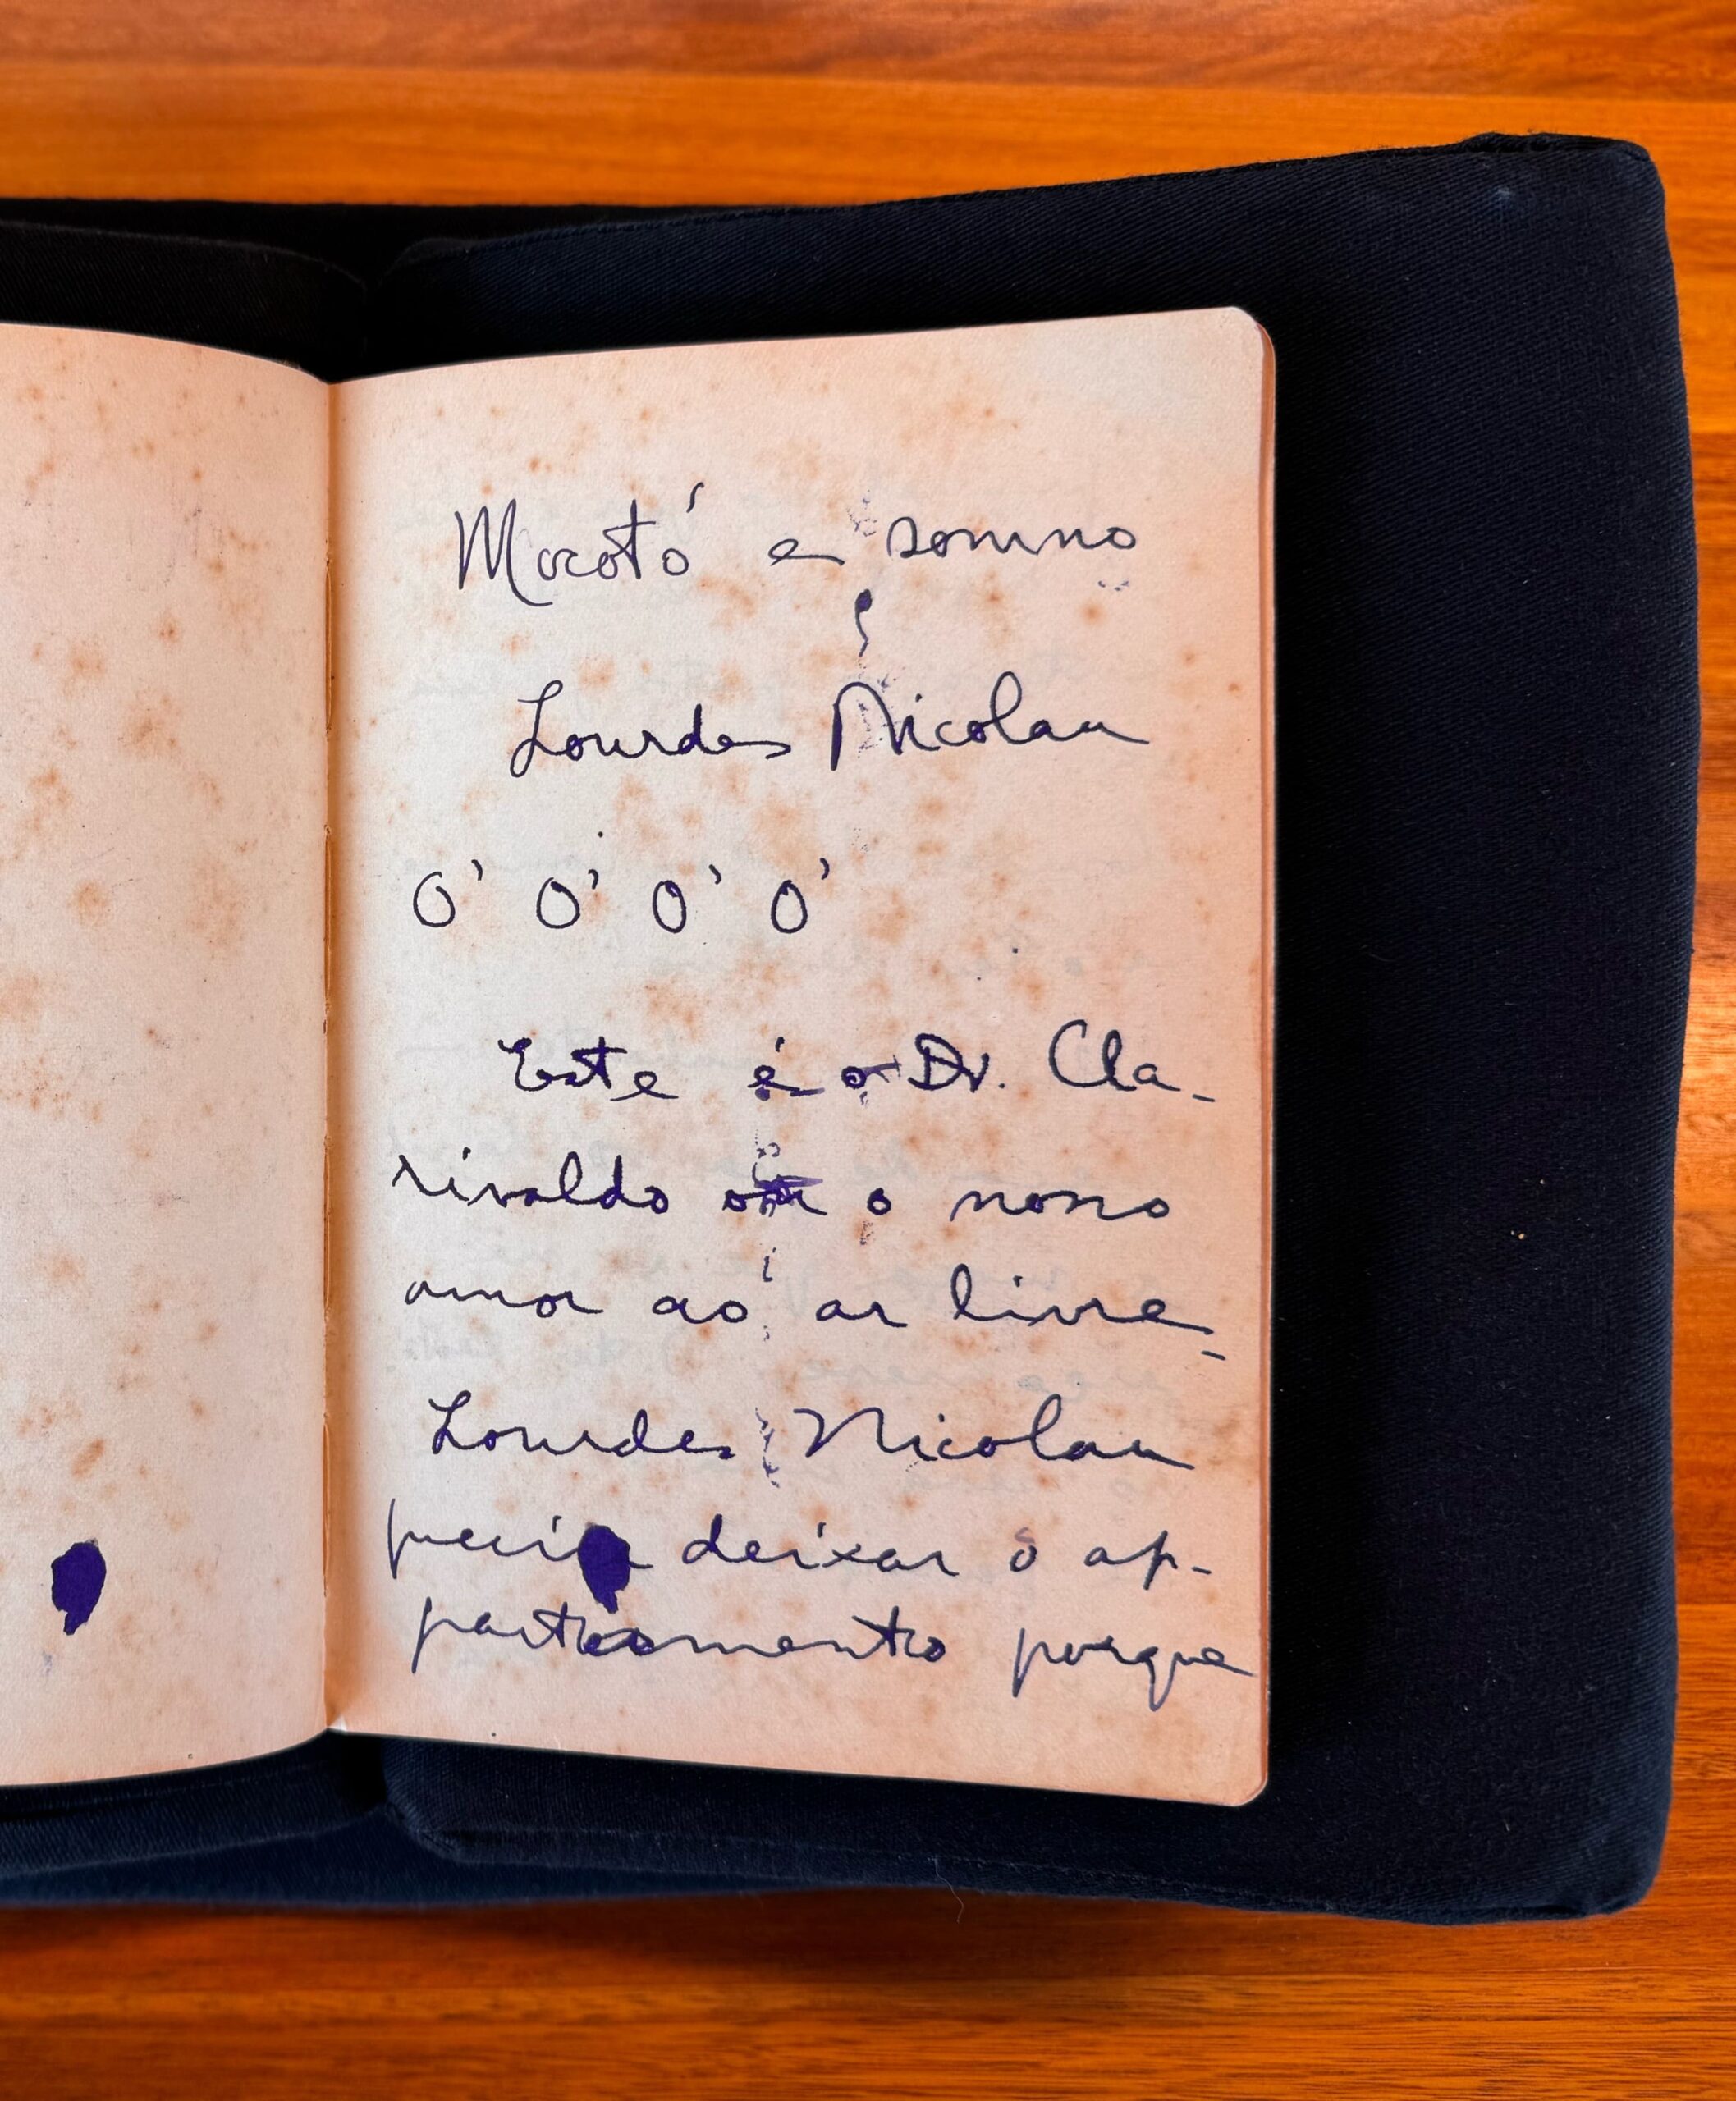 Mocotó e somno
Lourdes Nicolau
O' O' O' O'
Este é o Dr. Cla-
rivaldo o nosso
amor ao ar livre
Lourdes Nicolau
deixar o ap-
partamento porque